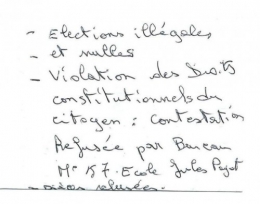 - Elections illégales
- et nulles
- Violation des Droits
constitutionnels du
citoyen : Contestation
Refusée par Bureau
N° 157. Ecole Jules Payot
refusées.